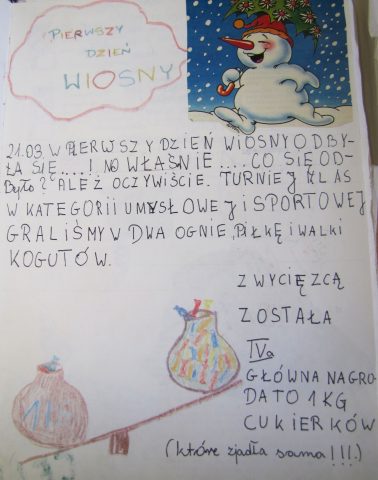 PIERWSZY
DZIEŃ
WIOSNY
21.03 W PIERWSZY DZIEŃ WIOSNY ODBY-
ŁA SIĘ....! NO WŁAŚNIE .... CO SIĘ OD-
BYŁO? ALEŻ OCZYWIŚCIE. TURNIEJ KLAS
W KATEGORII UMYSŁOWEJ I SPORTOWEJ
GRALIŚMY W DWA OGNIE, PIŁKĘ I WALKI
KOGUTÓW.
ZWYCIĘZCĄ
ZOSTAŁA
IVa
GŁÓWNA NAGRO-
DA TO 1 KG
CUKIERKÓW
(które zjadła sama!!!)